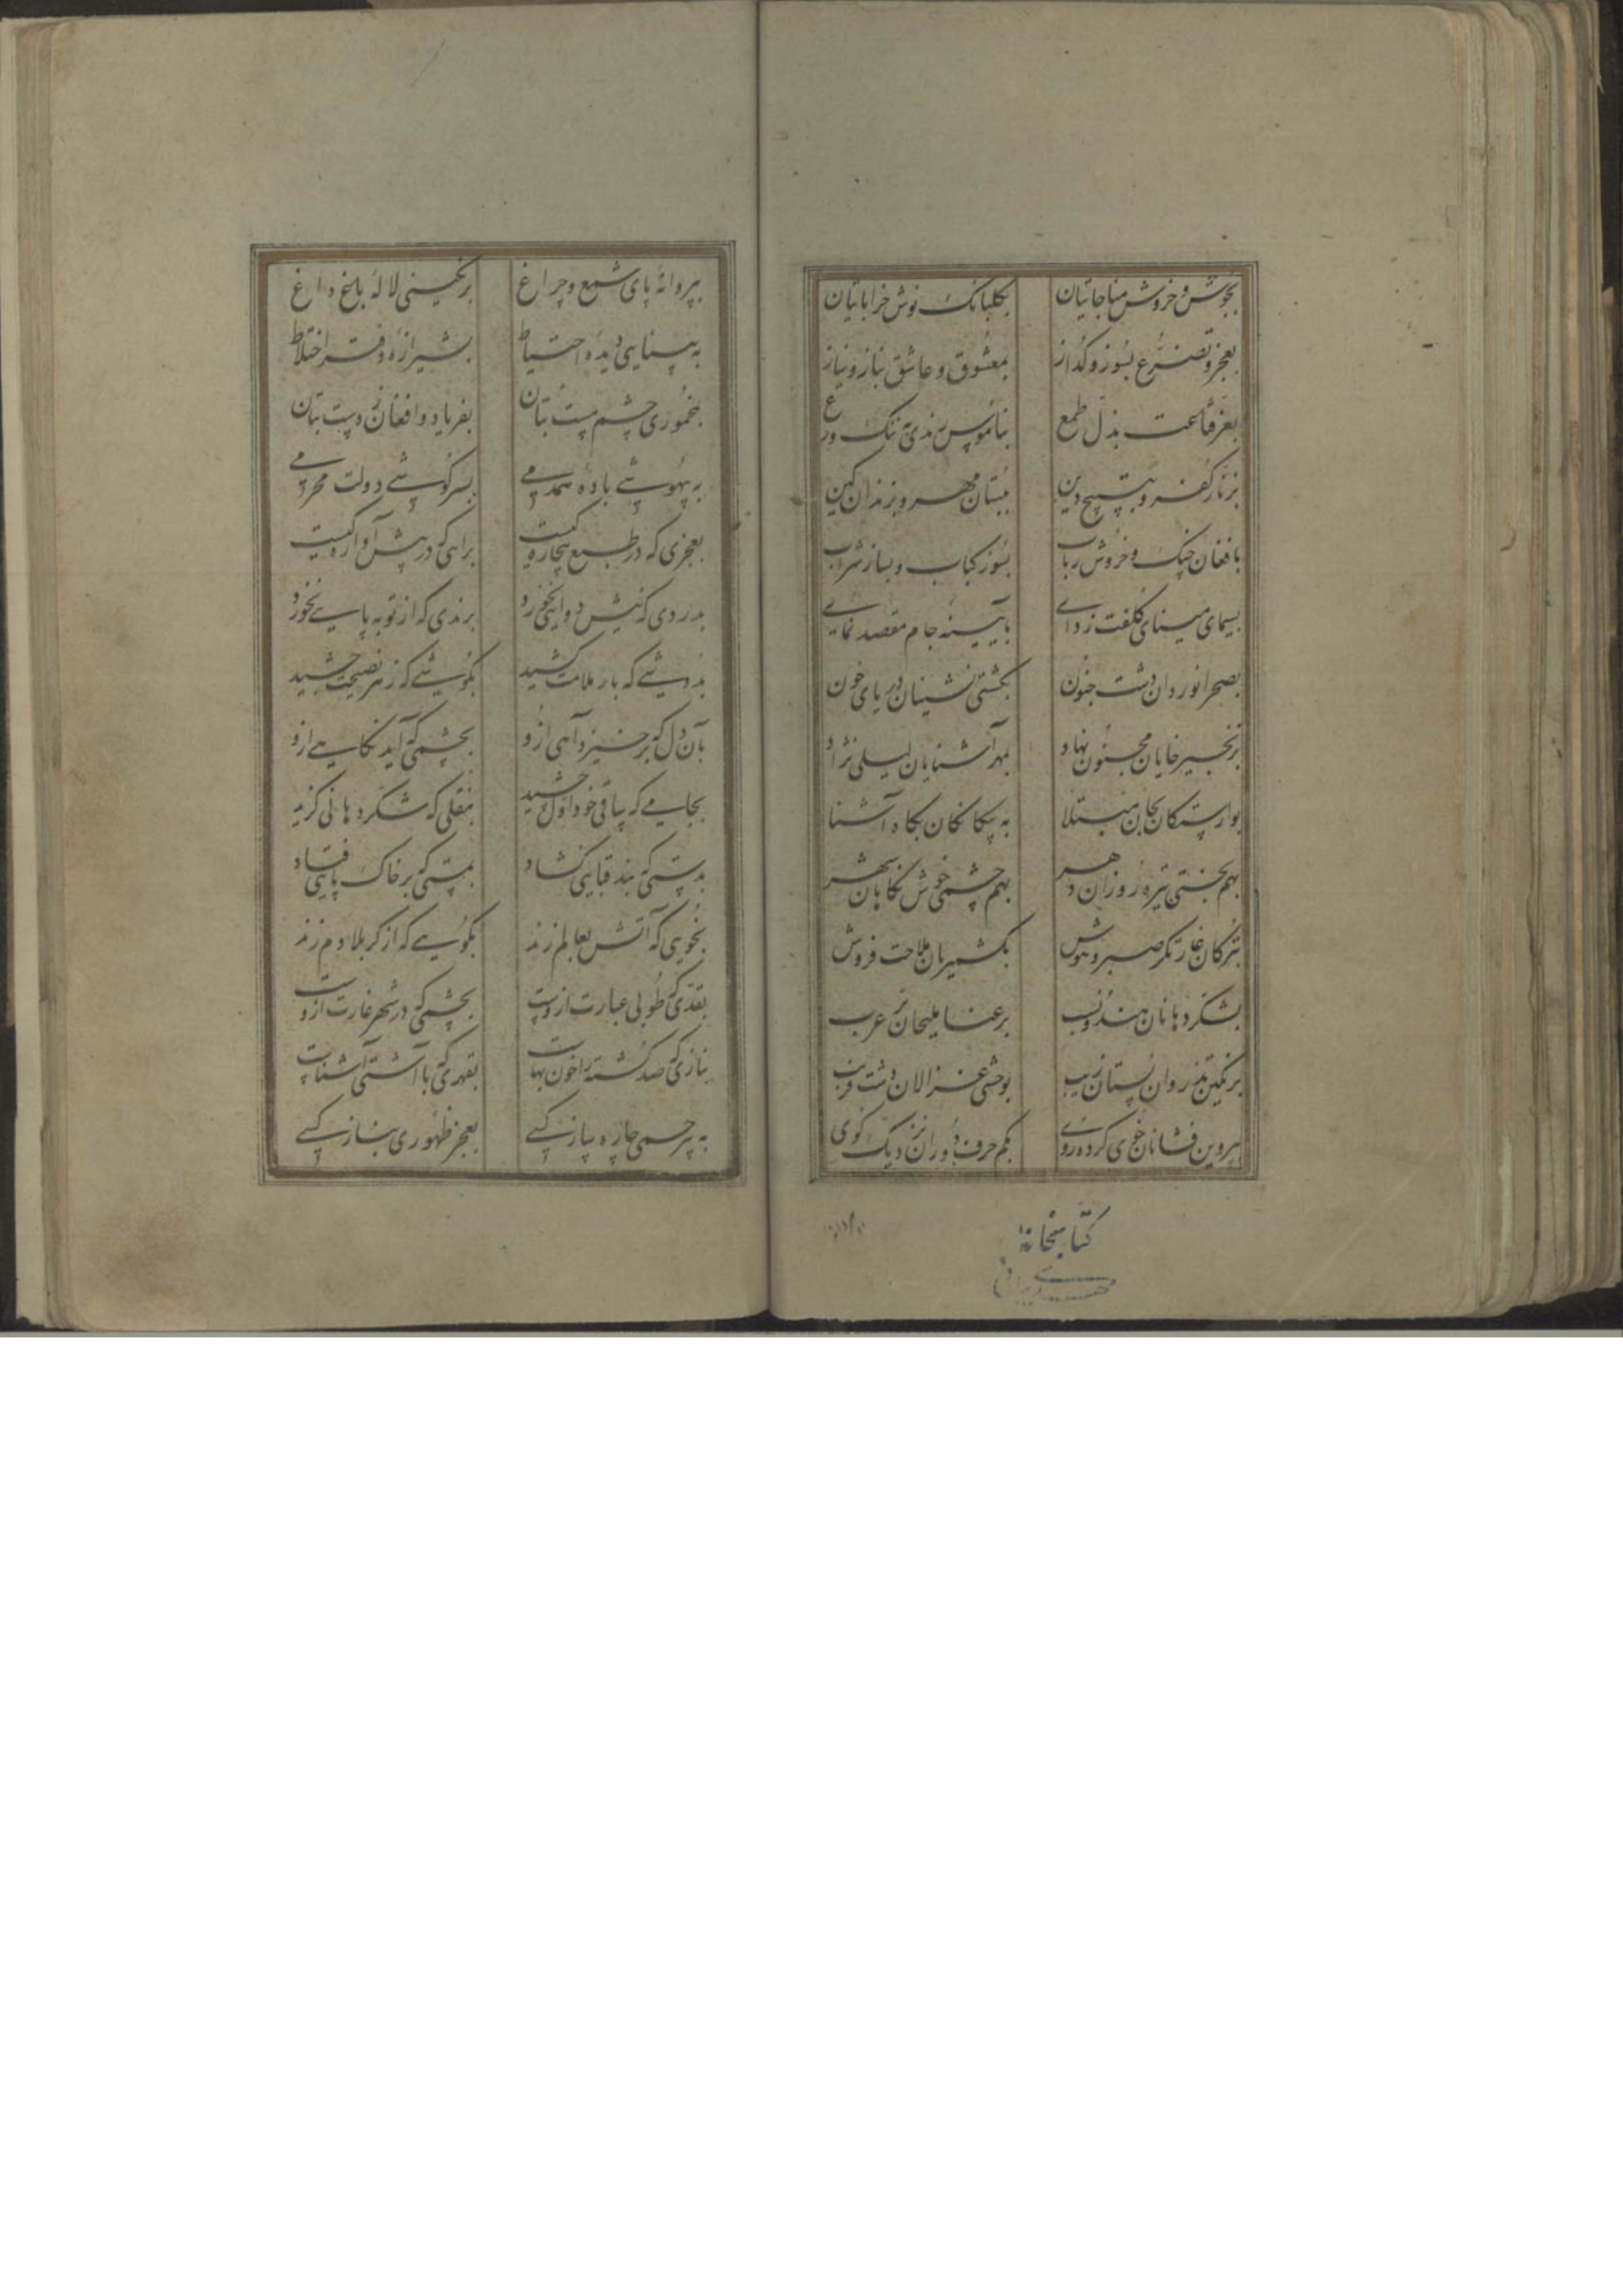 بجوش و خروش مناجاتیان بکلبانک نوش خراباتیان
بعجز و تضرع بسوز و کداز بمعشوق و عاشق بناز و نیاز
بعز قناعت بذل طمع بناموس رندی بننک ورع
بزنار کفر و بتسبیح دین ببستان مهر و بزندان کین
بافغان چنک و خروش رباب بسوز کباب و بساز شراب
بسیمای مینای کلفت زدای بآیینه جام مقصد نمای
بصحرانوردان دشت جنون بکشتی نشینان دریای خون
بزنجیرخایان مجنون نهاد بمهرآشنایان لیلی نژاد
بوارستکان بجان مبتلا به بیکانکان نکاه آشنا
بهم بختی تیره روزان دهر بهم چشمی خوش نکاهان شهر
بترکان غارتکر صبر و هوش بکشمیریان ملاحت فروش
بشکردهانان هندونسب برعنا ملیحان عرب
برنکین تذروان بستان زیب بوحشی غزالان دشت فریب
بپروین فشانان خوی کرده روی بکم حرف دوران نزدیک کوی
کتابخانهٔ
بپروانهٔ پای شمع و چراغ برنکینی لالهٔ باغ داغ
به بینایی دیدهٔ احتیاط بشیرازهٔ دفتر اختلاط
بمخموری چشم مست بتان بفریاد و افغان ز دست بتان
به بیهوشی بادهٔ همدمی بسرکوشی دولت محرمی
بعجزی که در طبع بیچاره کیست براهی که در پیش آواره کیست
بدردی که نیش دوایی نخورد برندی که از توبه پایی نخورد
بدوشی که بار ملامت کشید بکوشی که زهر نصیحت چشید
بآن دل که برخیزد آهی ازو بچشمی که آید نکاهی ازو
بجامی که ساقی خود اول چشید بنقلی که شکردهانی کزید
بدستی که بند قبایی کشاد بمستی که بر خاک پایی فتاد
بخویی که آتش بعالم زند بکویی که از کربلا دم زند
بقدی که طوبی عبارت ازوست بچشمی که در شهر غارت ازوست
بنازی که صد کشته را خون بهاست بقهری که با آشتی آشناست
به بیرحمی چاره ساز کسی بعجز ظهوری بناز کسی